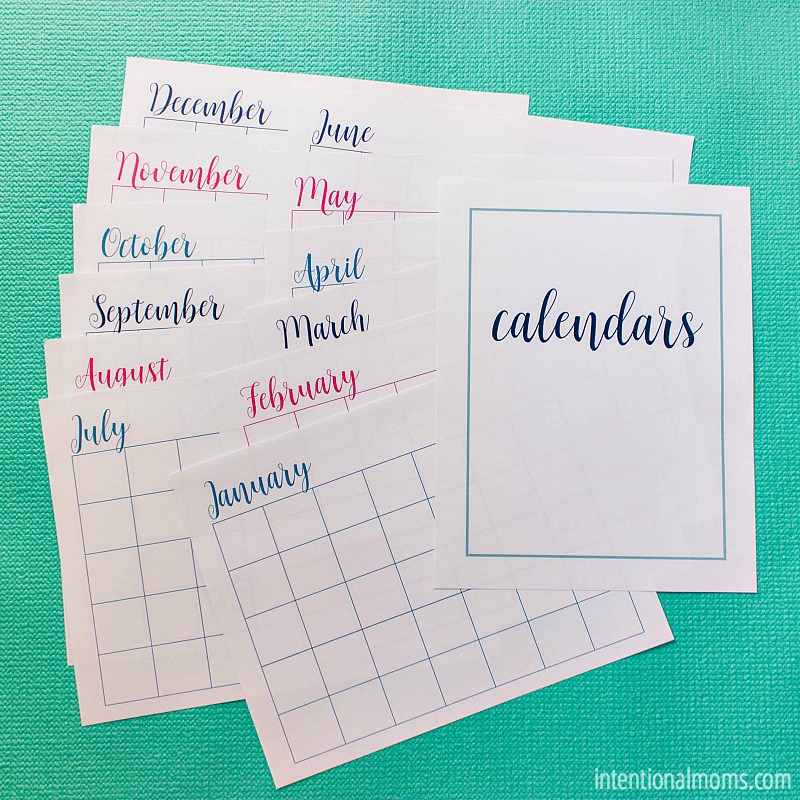 December
November
October
September
August
July
June
May
April
March
February
January
calendars
intentionalmoms.com